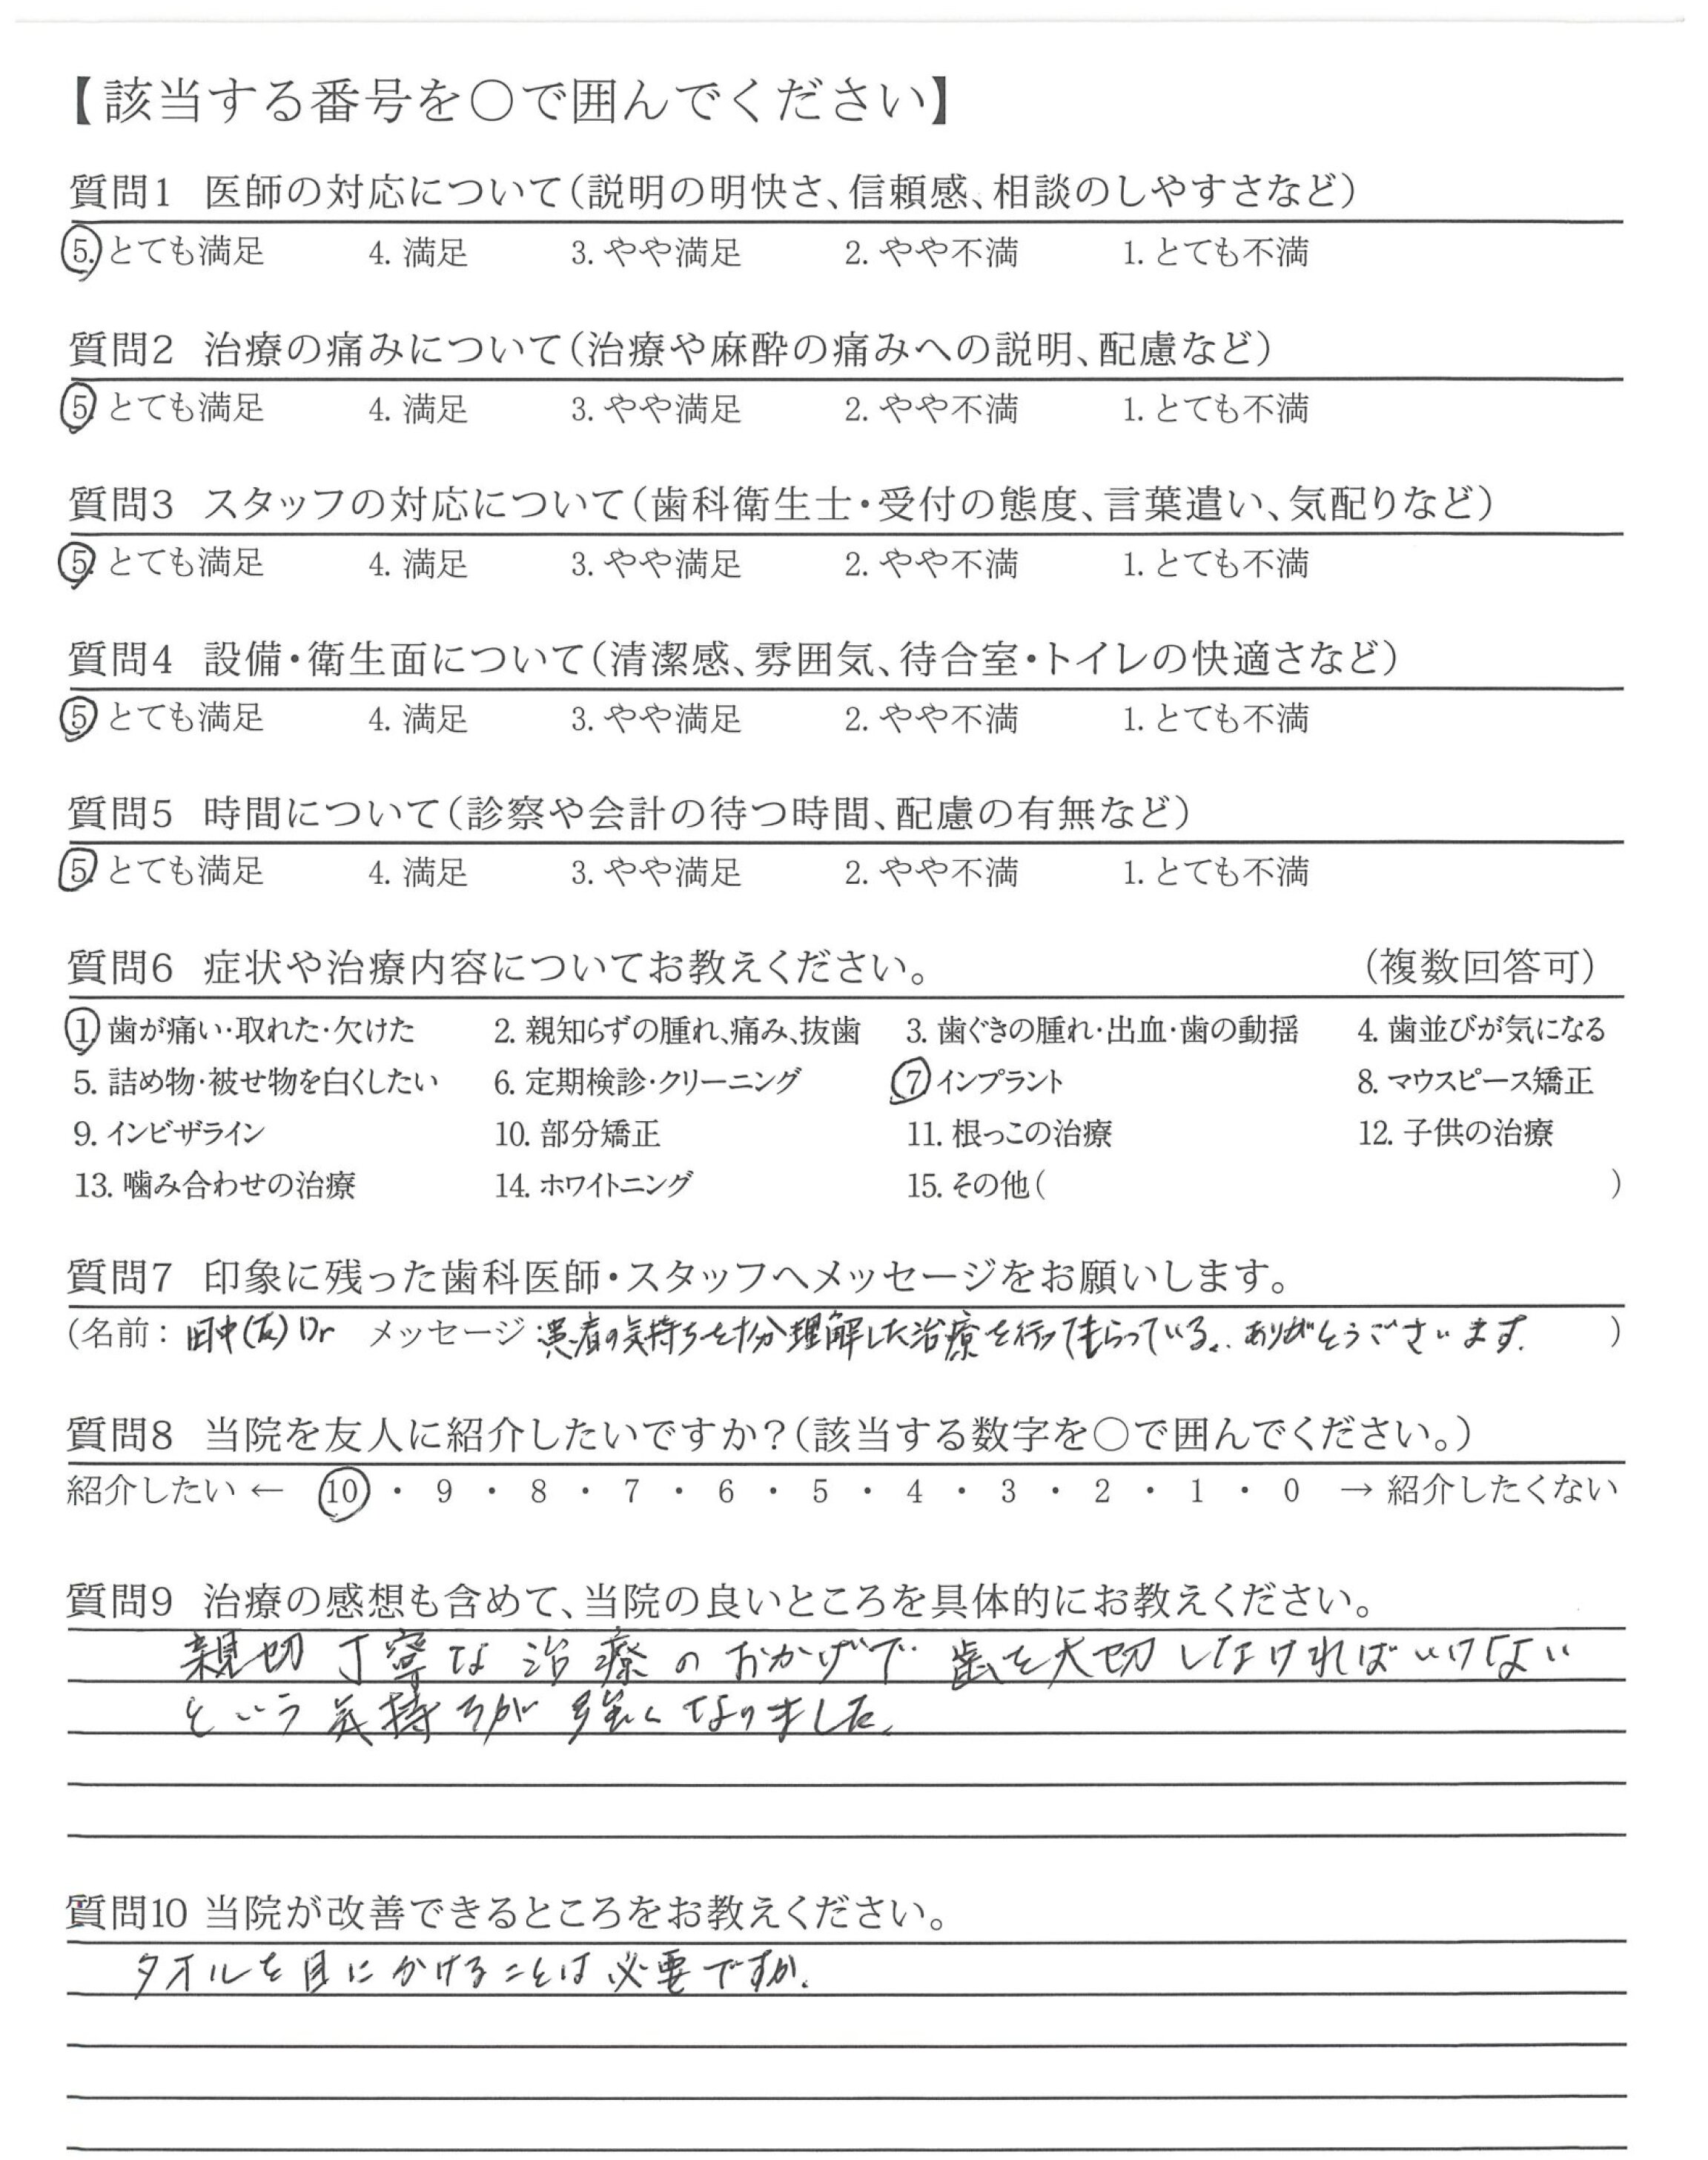 【該当する番号を○で囲んでください】
質問1 医師の対応について(説明の明快さ、信頼感、相談のしやすさなど)
5. とても満足 4. 満足 3. やや満足 2. やや不満 1. とても不満
質問2 治療の痛みについて(治療や麻酔の痛みへの説明、配慮など)
5. とても満足 4. 満足 3. やや満足 2. やや不満 1. とても不満
質問3 スタッフの対応について(歯科衛生士・受付の態度、言葉遣い、気配りなど)
5. とても満足 4. 満足 3. やや満足 2. やや不満 1. とても不満
質問4 設備・衛生面について(清潔感、雰囲気、待合室・トイレの快適さなど)
5. とても満足 4. 満足 3. やや満足 2. やや不満 1. とても不満
質問5 時間について(診察や会計の待つ時間、配慮の有無など)
5. とても満足 4. 満足 3. やや満足 2. やや不満 1. とても不満
質問6 症状や治療内容についてお教えください。 (複数回答可)
1. 歯が痛い・取れた・欠けた 2. 親知らずの腫れ、痛み、抜歯 3. 歯ぐきの腫れ・出血・歯の動揺 4. 歯並びが気になる
5. 詰め物・被せ物を白くしたい 6. 定期検診・クリーニング 7 インプラント 8. マウスピース矯正
9. インビザライン 10. 部分矯正 11. 根っこの治療 12. 子供の治療
13. 噛み合わせの治療 14. ホワイトニング 15. その他( )
質問7 印象に残った歯科医師・スタッフへメッセージをお願いします。
(名前: 田中(友)Dr メッセージ: 患者の気持ちを十分理解した治療を行ってもらっている。ありがとうございます。 )
質問8 当院を友人に紹介したいですか?(該当する数字を○で囲んでください。)
紹介したい ← 10 ・ 9 ・ 8 ・ 7 ・ 6 ・ 5 ・ 4 ・ 3 ・ 2 ・ 1 ・ 0 → 紹介したくない
質問9 治療の感想も含めて、当院の良いところを具体的にお教えください。
親切丁寧な治療のおかげで歯を大切しなければいけない
という気持ちが強くなりました。
質問10 当院が改善できるところをお教えください。
タオルを目にかけることは必要ですか。